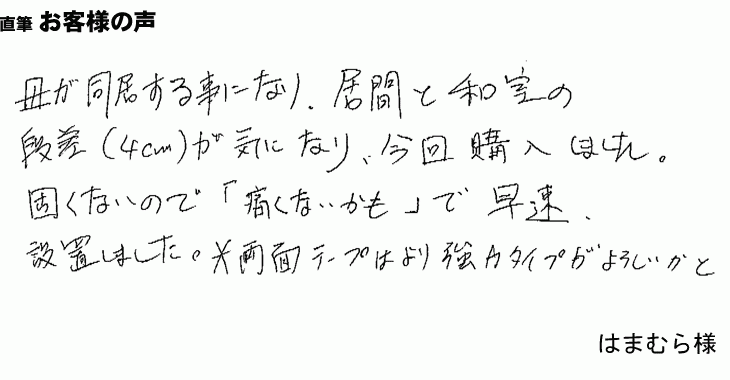 直筆 お客様の声
母が同居する事になり、居間と和室の
段差(4cm)が気になり、今回購入しました。
固くないので「痛くないかも」で早速、
設置しました。※両面テープはより強力タイプがよろしいかと
はまむら様